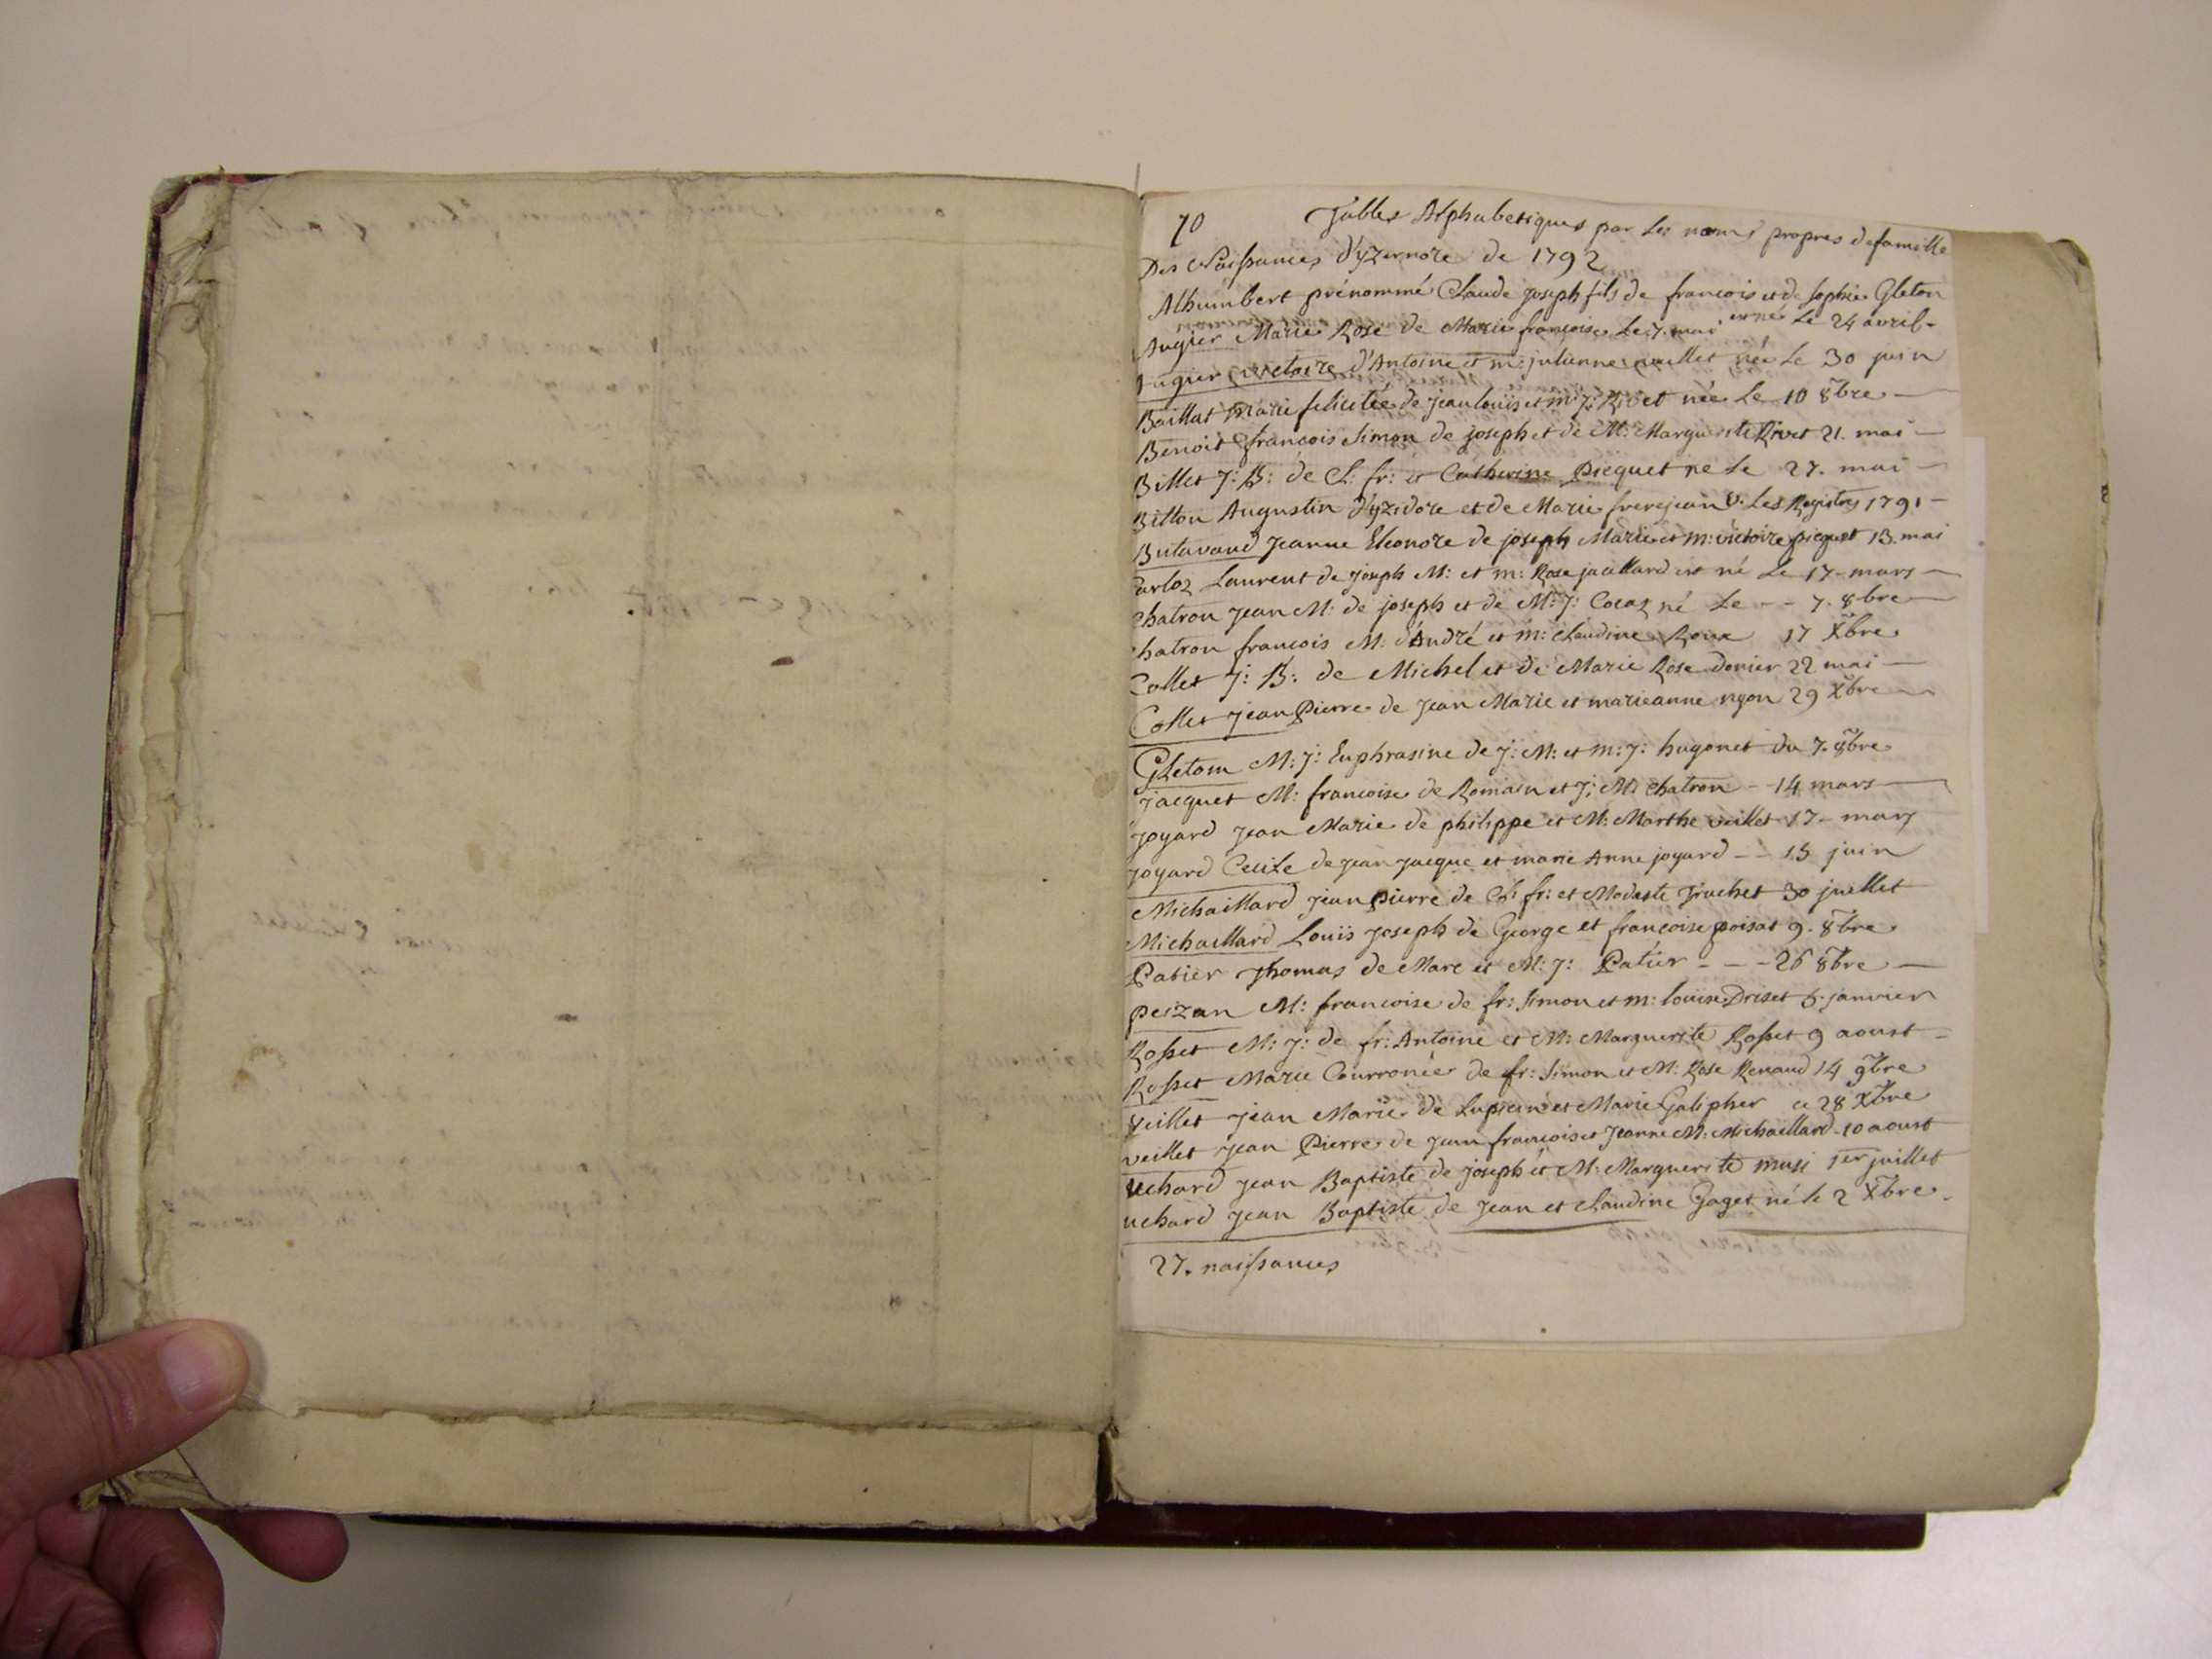 70 Tables Alphabetiques par les noms propres de famille
Des Naissances d'yzernore de 1792
Alhumbert prénommé Claude joseph fils de francois et de Sophie Gleton
est né le 24 avril -
Augier Marie Rose de Marie francoise le 7. mai
augier victoire d'Antoine et m: julienne veillet née le 30 juin
Baillat Marie felicitée de jean louis et m: j: Rivet née le 10 8bre -
Benoit francois Simon de joseph et de M: Marguerite Rivet 21. mai -
Billet J: B: de Cl: fr: et Catherine Piequet né le 27. mai -
Billon Augustin d'yzidore et de Marie frerejean v. les Registres 1791 -
Butavand Jeanne Eleonore de joseph Marie et m: victoire piequet 13. mai
arloz Laurent de joseph M: et m: Rose jaillard est né le 17 - mars -
chatron Jean M: de joseph et de M: J: Cocaz né le - - 7. 8bre -
hatron francois M: d'André et m: Claudine Roux 17 Xbre
Collet J: B: de Michel et de Marie Rose Donier 22 mai -
Collet jean Pierre de Jean Marie et marieanne nyon 29 Xbre -
Gletom M: j: Euphrasine de j: M: et m: j: hugonet du 7. 8bre
Jacquet M: francoise de Romain et J: M: Chatron - 14 mars -
joyard jean Marie de philippe et M: Marthe veillet 17 - mars
joyard Cecile de jean jacque et marie Anne joyard - - 15 juin
Michaillard jean pierre de Cl: fr: et Modeste Truchet 30 juillet
Michaillard Louis joseph de George et francoise poisat 9. 8bre
Patier Thomas de Marc et M: J: Patier - - - 26 8bre -
peizan M: francoise de fr: Simon et m: louise Driset 6. janvier
Rosset M: J: de fr: Antoine et M: Marguerite Rosset 9 aoust -
Rosset Marie Couronnée de fr: Simon et M: Rose Renaud 14 9bre
Veillet jean Marie de Lupicin et Marie Galipher ce 28 Xbre
veillet jean Pierre de jean francois et Jeanne M: Michaillard - 10 aoust
uchard jean Baptiste de joseph et M: Marguerite musi 1er juillet
uchard jean Baptiste de jean et Claudine Gaget né le 2 Xbre -
27. naissances